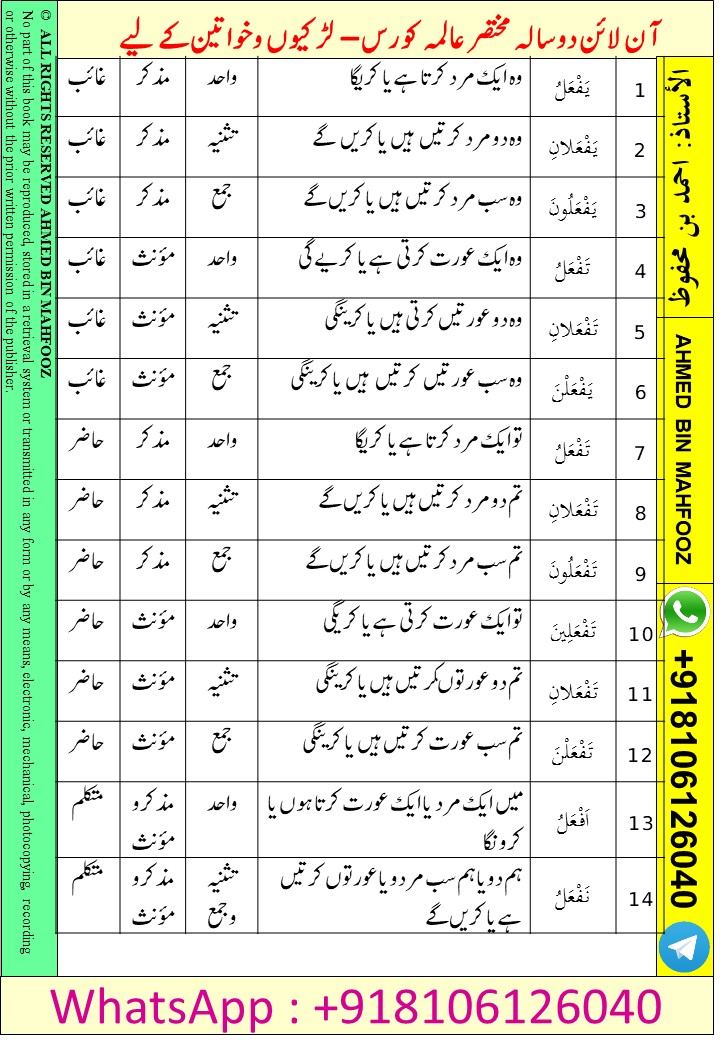 آن لائن دو سالہ مختصر عالمہ کورس – لڑکیوں و خواتین کے لیے
1 يَفْعَلُ وہ ایک مرد کرتا ہے یا کریگا واحد مذکر غائب
2 يَفْعَلانِ وہ دو مرد کرتیں ہیں یا کریں گے تثنیہ مذکر غائب
3 يَفْعَلُونَ وہ سب مرد کرتیں ہیں یا کریں گے جمع مذکر غائب
4 تَفْعَلُ وہ ایک عورت کرتی ہے یا کریے گی واحد مؤنث غائب
5 تَفْعَلانِ وہ دو عورتیں کرتی ہیں یا کرینگی تثنیہ مؤنث غائب
6 يَفْعَلْنَ وہ سب عورتیں کرتیں ہیں یا کرینگی جمع مؤنث غائب
7 تَفْعَلُ تو ایک مرد کرتا ہے یا کریگا واحد مذکر حاضر
8 تَفْعَلانِ تم دو مرد کرتیں ہیں یا کریں گے تثنیہ مذکر حاضر
9 تَفْعَلُونَ تم سب مرد کرتیں ہیں یا کریں گے جمع مذکر حاضر
10 تَفْعَلِينَ تو ایک عورت کرتی ہے یا کریگی واحد مؤنث حاضر
11 تَفْعَلانِ تم دو عورتوں کرتیں ہیں یا کرینگی تثنیہ مؤنث حاضر
12 تَفْعَلْنَ تم سب عورت کرتیں ہیں یا کرینگی جمع مؤنث حاضر
13 اَفْعَلُ میں ایک مرد یا ایک عورت کرتا ہوں یا واحد مذکر و متکلم
کرونگا مؤنث
14 نَفْعَلُ ہم دو یا ہم سب مرد و یا عورتوں کرتیں تثنیہ مذکر و متکلم
ہے یا کریں گے و جمع مؤنث
الأستاذ: احمد بن محفوظ
AHMED BIN MAHFOOZ
+918106126040
© ALL RIGHTS RESERVED AHMED BIN MAHFOOZ
No part of this book may be reproduced, stored in a retrieval system or transmitted in any form or by any means, electronic, mechanical, photocopying, recording
or otherwise without the prior written permission of the publisher.
WhatsApp : +918106126040